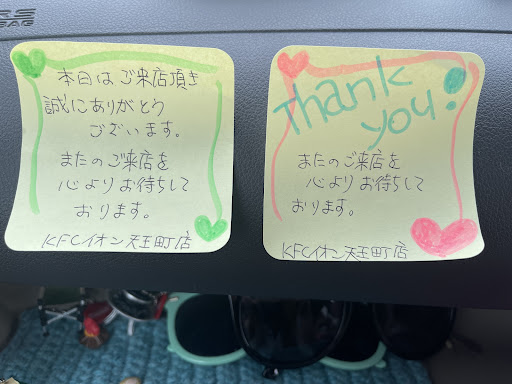 RS
BAG
本日はご来店頂き
誠にありがとう
ございます。
またのご来店を
心よりお待ちして
おります。
KFCイオン天王町店
Thank
you!
またのご来店を
心よりお待ちして
おります。
KFCイオン天王町店